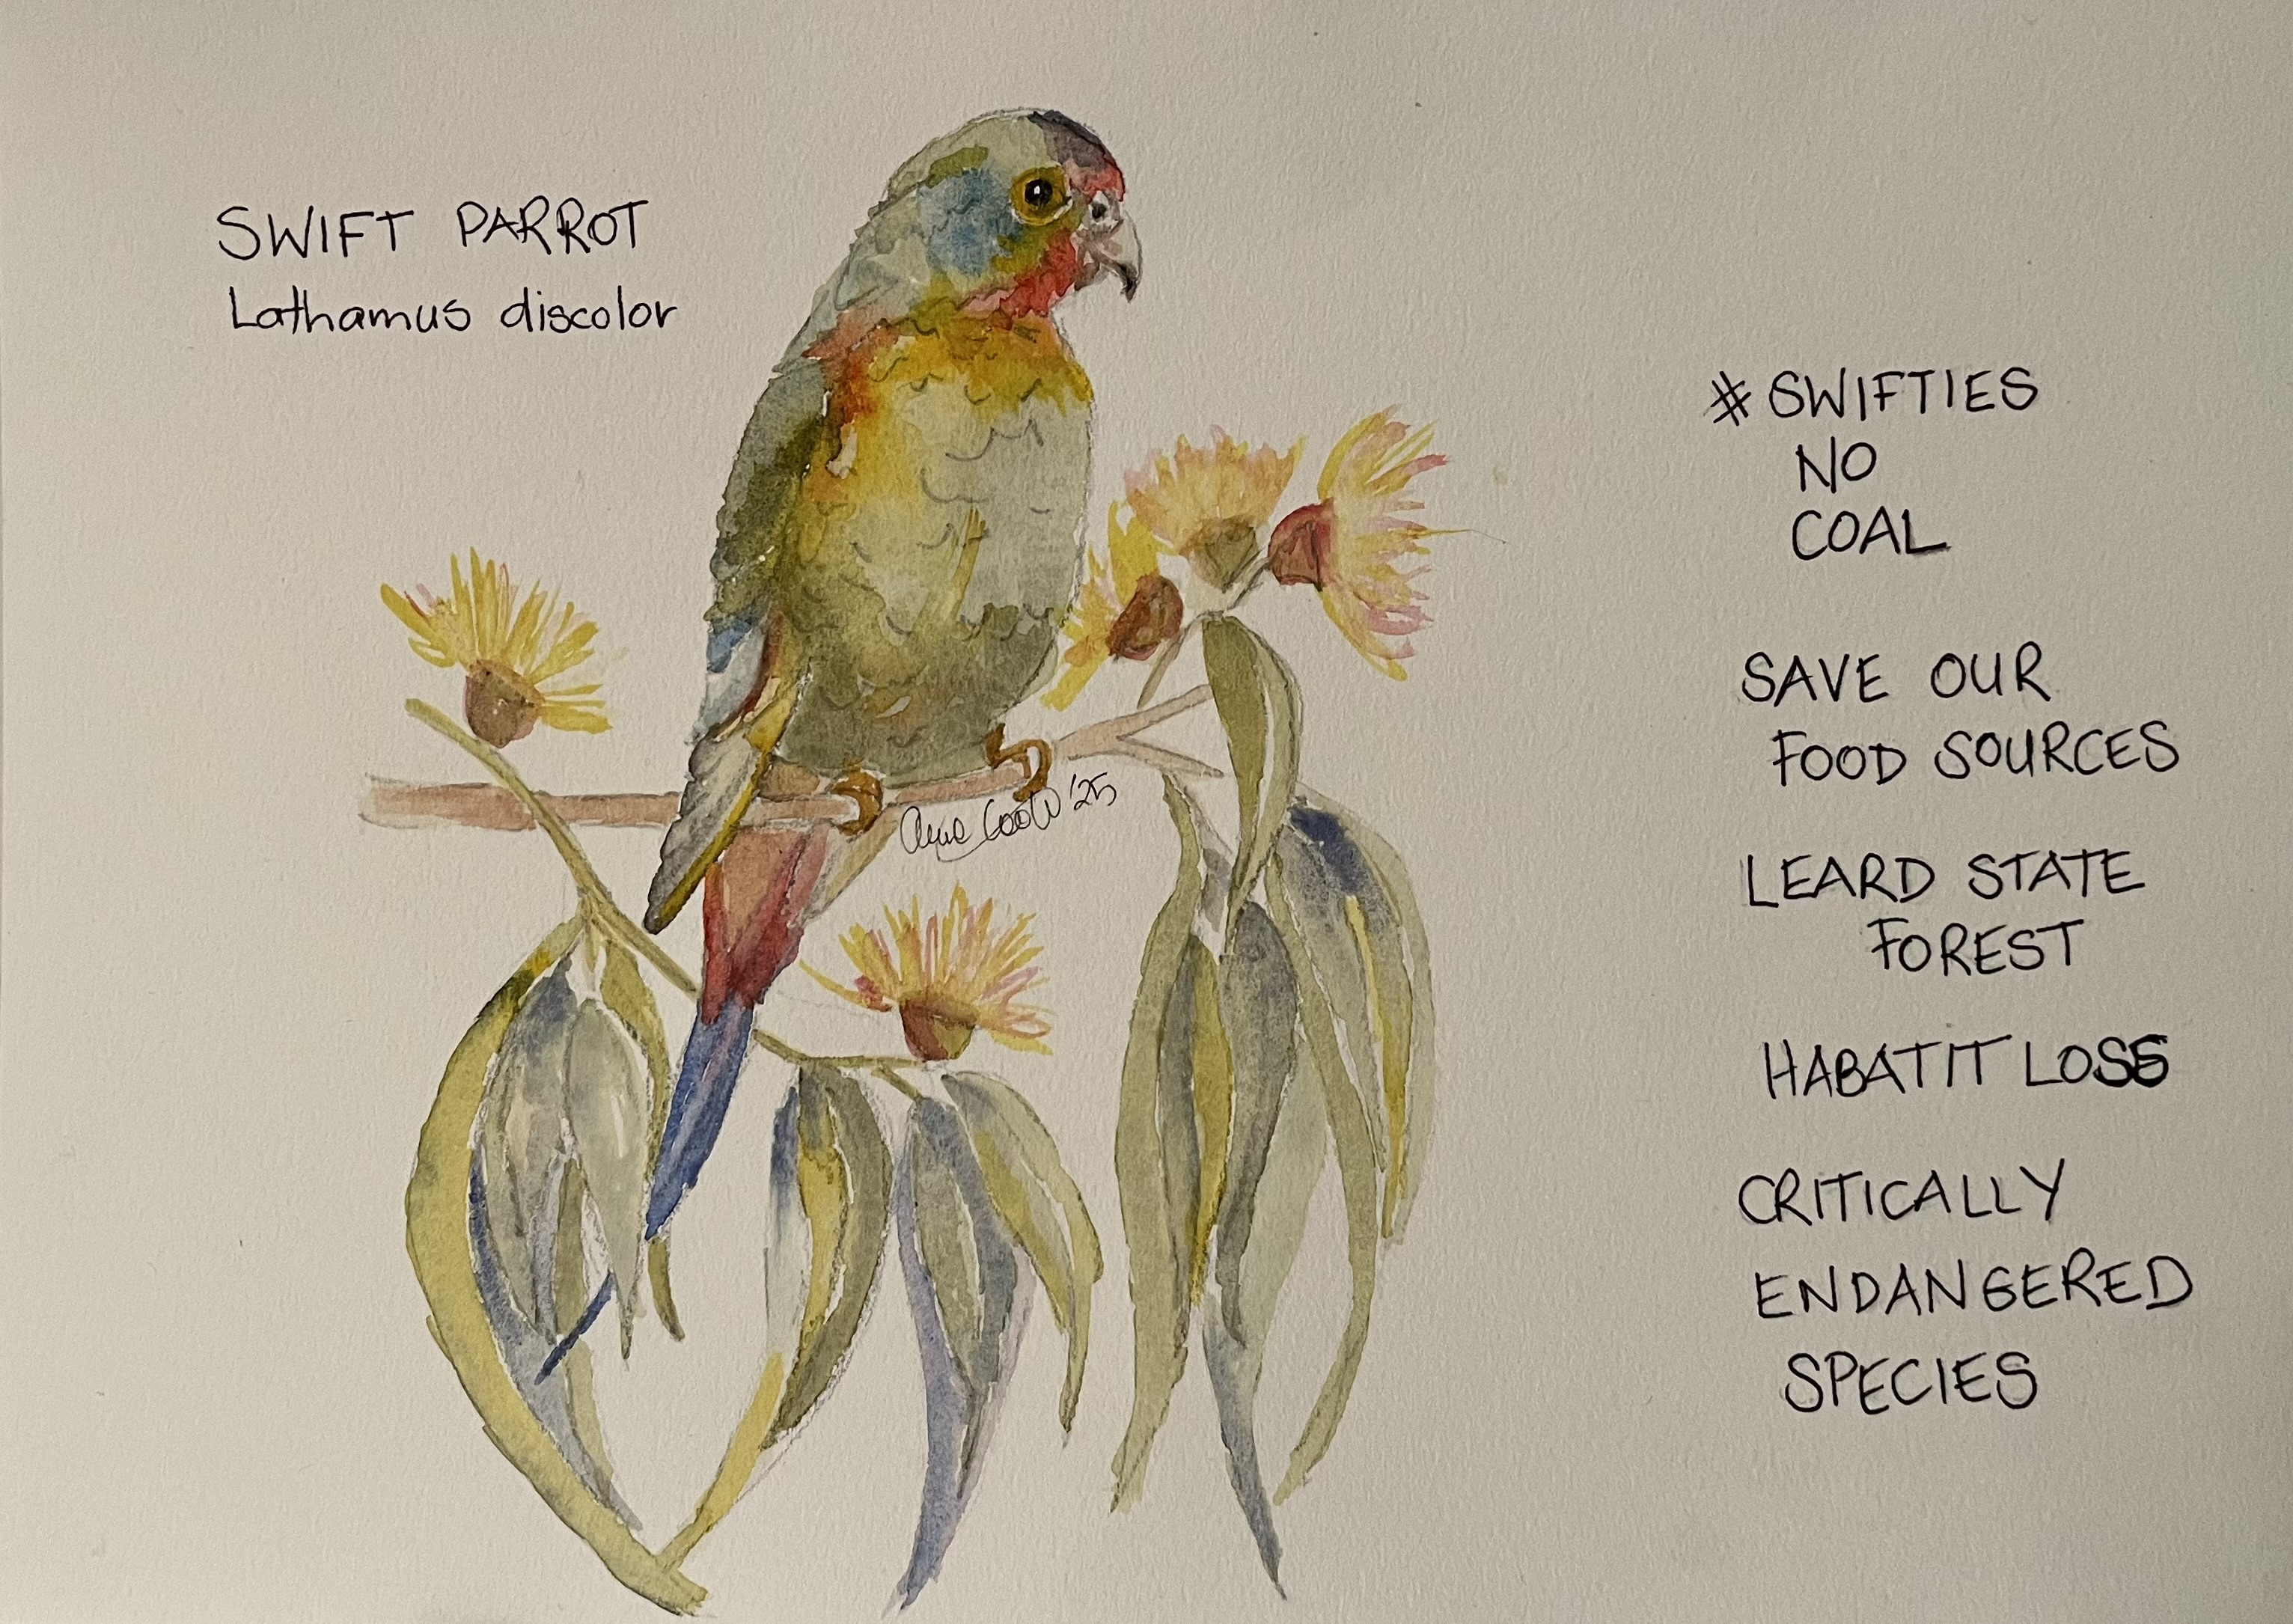 SWIFT PARROT
Lathamus discolor
# SWIFTIES
NO
COAL
SAVE OUR
FOOD SOURCES
LEARD STATE
FOREST
HABATIT LOSS
CRITICALLY
ENDANGERED
SPECIES
'25